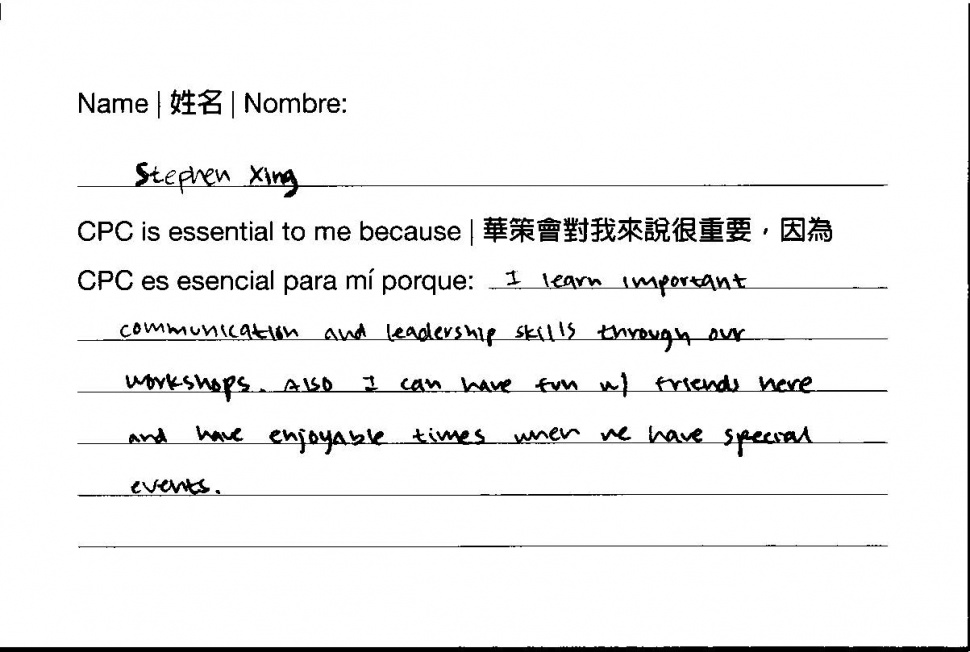 Name | 姓名 | Nombre:
Stephen Xing
CPC is essential to me because | 華策會對我來說很重要，因為
CPC es esencial para mí porque: I learn important
communication and leadership skills through our
workshops. Also I can have fun w/ friends here
and have enjoyable times when we have special
events.